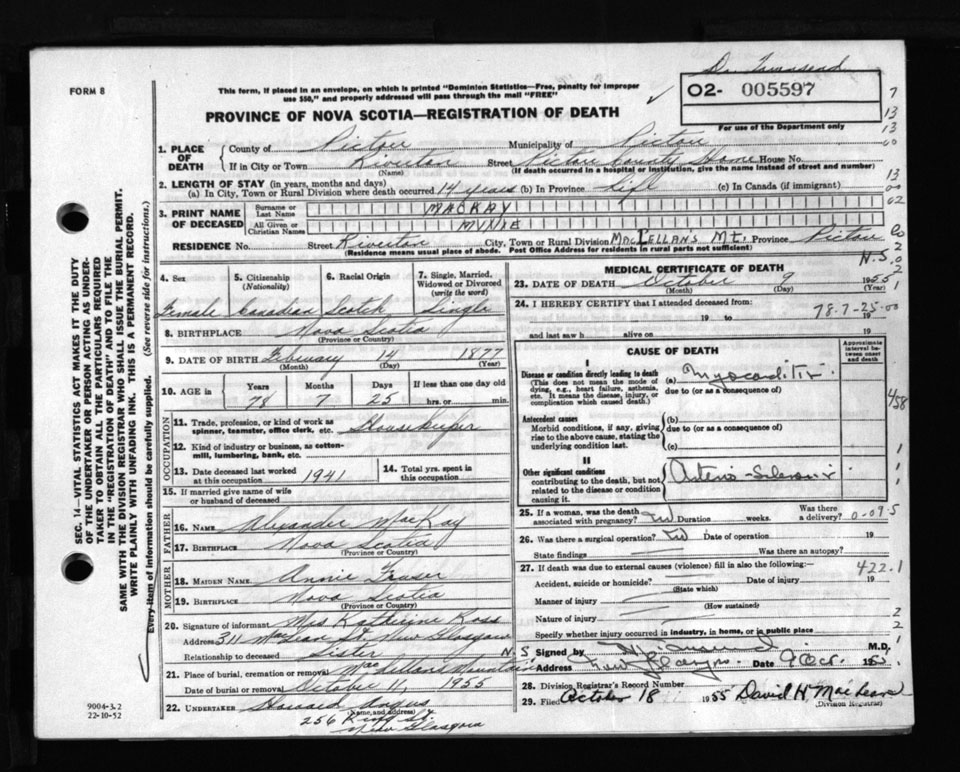 Dr. Townsend
FORM 8
This form, if placed in an envelope, on which is printed "Dominion Statistics—Free, penalty for improper
use $50," and properly addressed will pass through the mail "FREE"
PROVINCE OF NOVA SCOTIA—REGISTRATION OF DEATH
02- 005597
For use of the Department only
1. PLACE OF DEATH County of Pictou Municipality of Pictou
If in City or Town Riverton Street Pictou County Home House No.
(Name) (If death occurred in a hospital or institution, give the name instead of street and number)
2. LENGTH OF STAY (in years, months and days)
(a) In City, Town or Rural Division where death occurred 14 years (b) In Province Life (c) In Canada (if immigrant)
3. PRINT NAME OF DECEASED Surname or Last Name MACKAY
All Given or Christian Names MINIE
RESIDENCE No. Street Riverton City, Town or Rural Division MacLellans Mt. Province Pictou Co
(Residence means usual place of abode. Post Office Address for residents in rural parts not sufficient) N.S.
4. Sex 5. Citizenship (Nationality) 6. Racial Origin 7. Single, Married, Widowed or Divorced (write the word)
Female Canadian Scotch Single
8. BIRTHPLACE Nova Scotia
(Province or Country)
9. DATE OF BIRTH February 14 1877
(Month) (Day) (Year)
10. AGE in Years Months Days If less than one day old
78 7 25 hrs. or min.
OCCUPATION
11. Trade, profession, or kind of work as spinner, teamster, office clerk, etc. Housekeeper
12. Kind of industry or business, as cotton-mill, lumbering, bank, etc.
13. Date deceased last worked at this occupation 1941 14. Total yrs. spent in this occupation
15. If married give name of wife or husband of deceased
FATHER
16. NAME Alexander MacKay
17. BIRTHPLACE Nova Scotia
(Province or Country)
MOTHER
18. MAIDEN NAME Annie Fraser
19. BIRTHPLACE Nova Scotia
(Province or Country)
20. Signature of informant Mrs Katherine Ross
Address 311 MacLean St. New Glasgow
Relationship to deceased Sister N.S
21. Place of burial, cremation or removal MacLellans Mountain
Date of burial or removal October 11, 1955
22. UNDERTAKER Howard Angus
(Name and address)
256 King St.
New Glasgow
MEDICAL CERTIFICATE OF DEATH
23. DATE OF DEATH October 9 1955
(Month) (Day) (Year)
24. I HEREBY CERTIFY that I attended deceased from
19 to 19
78-7-25-00
and last saw h alive on 19
CAUSE OF DEATH
Approximate interval between onset and death
I
Disease or condition directly leading to death (a) Myocarditis
(This does not mean the mode of dying, e.g., heart failure, asthenia, etc. It means the disease, injury, or complication which caused death.) due to (or as a consequence of)
Antecedent causes (b)
Morbid conditions, if any, giving rise to the above cause, stating the underlying condition last. due to (or as a consequence of)
(c)
II
Other significant conditions Arterio-Sclerosis
contributing to the death, but not related to the disease or condition causing it
25. If a woman, was the death associated with pregnancy? Duration weeks. Was there a delivery?
0-09-5
26. Was there a surgical operation? Date of operation 19
State findings Was there an autopsy?
27. If death was due to external causes (violence) fill in also the following: 422.1
Accident, suicide or homicide? Date of injury 19
(State which)
Manner of injury
(How sustained)
Nature of injury
Specify whether injury occurred in industry, in home, or in public place
Signed by M.D.
Address New Glasgow Date 9 Oct. 1955
28. Division Registrar's Record Number
29. Filed October 18 1955 David H MacLean
(Division Registrar)
SEC. 14—VITAL STATISTICS ACT MAKES IT THE DUTY
OF THE UNDERTAKER OR PERSON ACTING AS UNDER-
TAKER TO OBTAIN ALL THE PARTICULARS REQUIRED
IN THE "REGISTRATION OF DEATH" AND TO FILE THE
SAME WITH THE DIVISION REGISTRAR WHO SHALL ISSUE THE BURIAL PERMIT.
WRITE PLAINLY WITH UNFADING INK. THIS IS A PERMANENT RECORD.
Every item of information should be carefully supplied. (See reverse side for instructions.)
9004-3.2
22-10-52